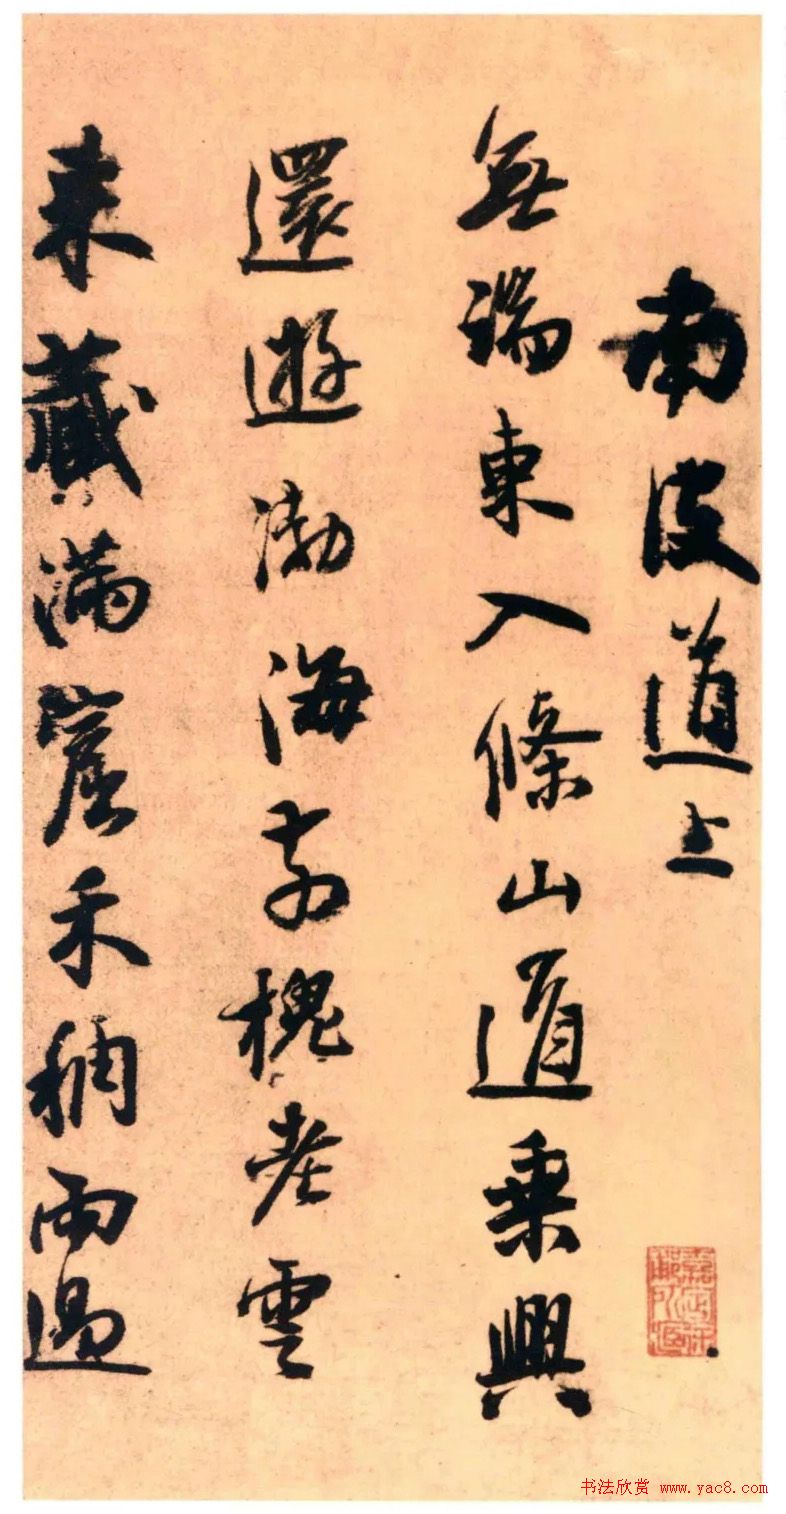 南皮道上
無端東入條山道乗興
還遊渤海前槐老雲
来藏滿禾稠雨過
书法欣赏 www.yac8.com